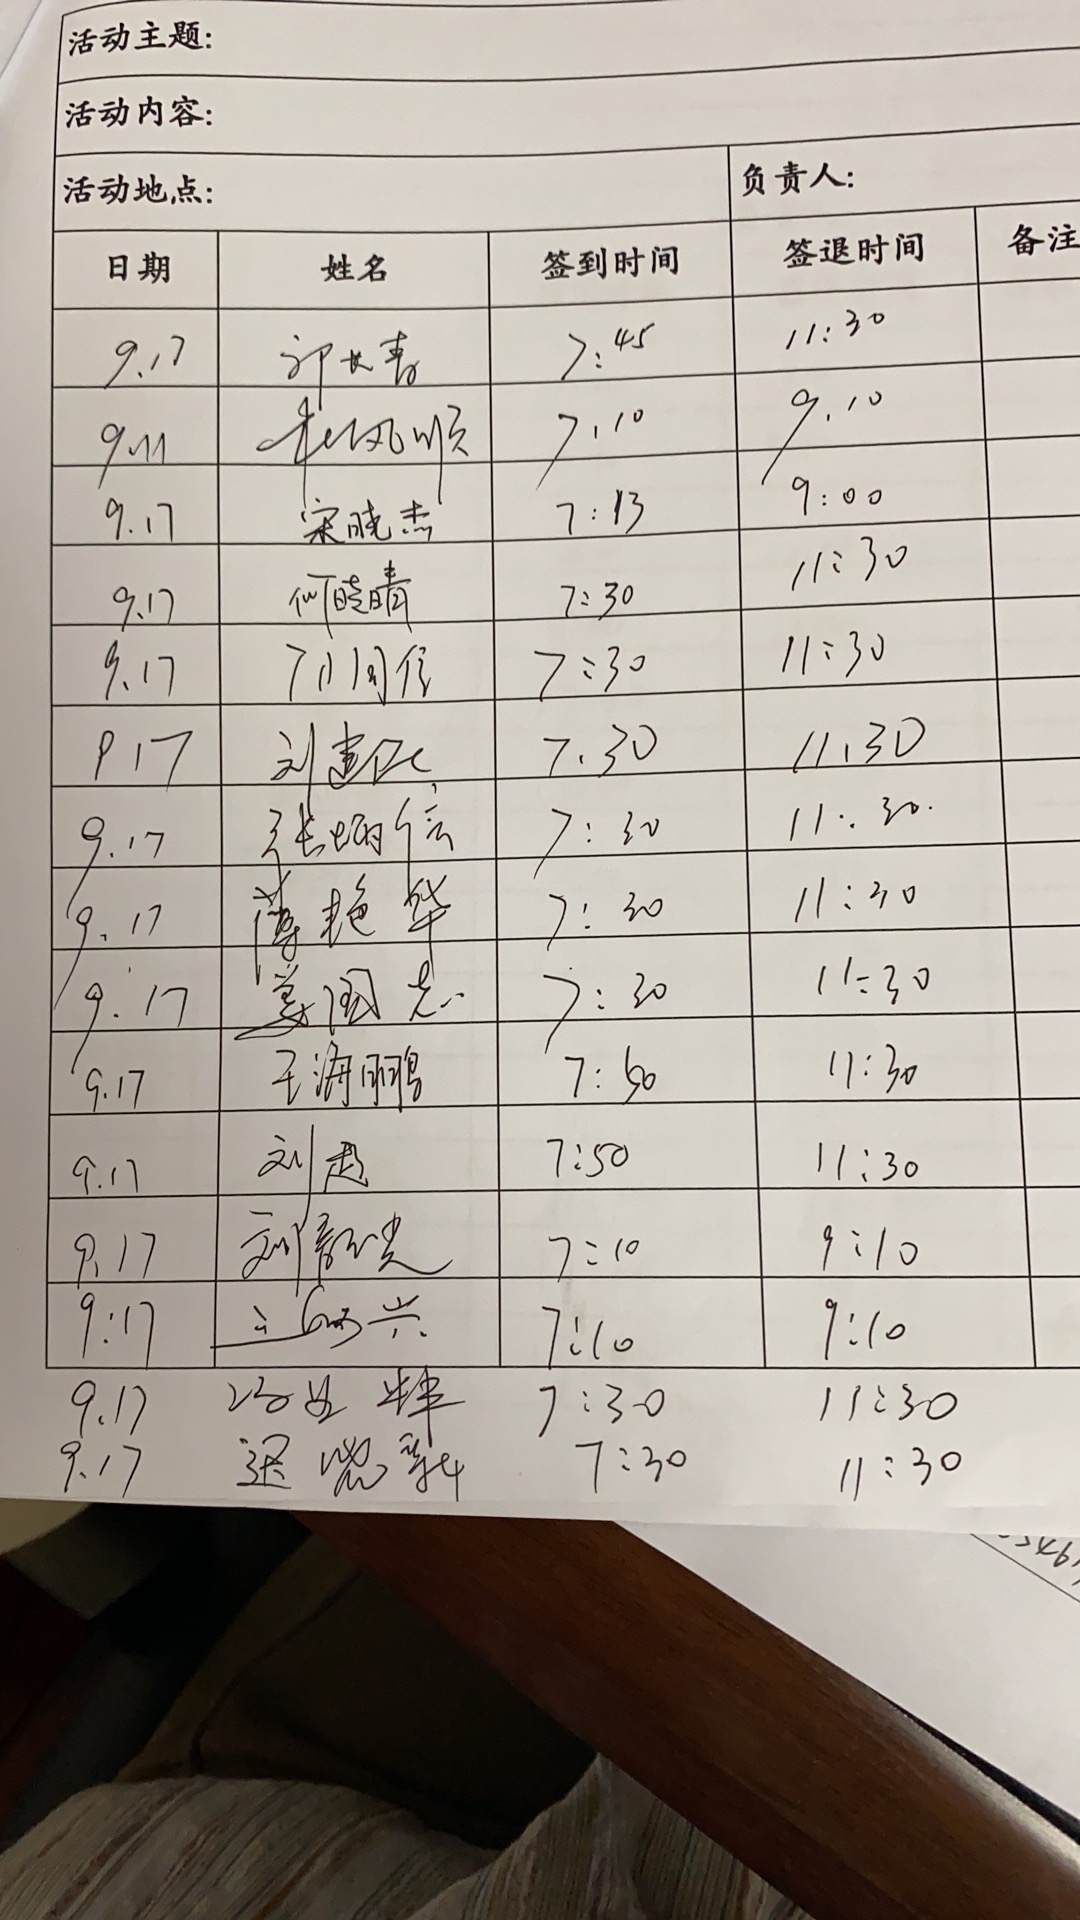 活动主题:
活动内容:
活动地点: 负责人:
日期 姓名 签到时间 签退时间 备注
9.17 7:45 11:30
9.11 7.10 9.10
9.17 宋晓杰 7:13 9:00
9.17 何晓晴 7:30 11:30
9.17 7:30 11:30
9.17 刘建 7.30 11.30
9.17 张炳信 7:30 11:30.
9.17 薄艳华 7:30 11:30
9.17 姜国志 7:30 11:30
9.17 王海鹏 7:50 11:30
9.17 刘超 7:50 11:30
9.17 刘 7:10 9:10
9:17 兴 7:10 9:10
9.17 7:30 11:30
9.17 7:30 11:30